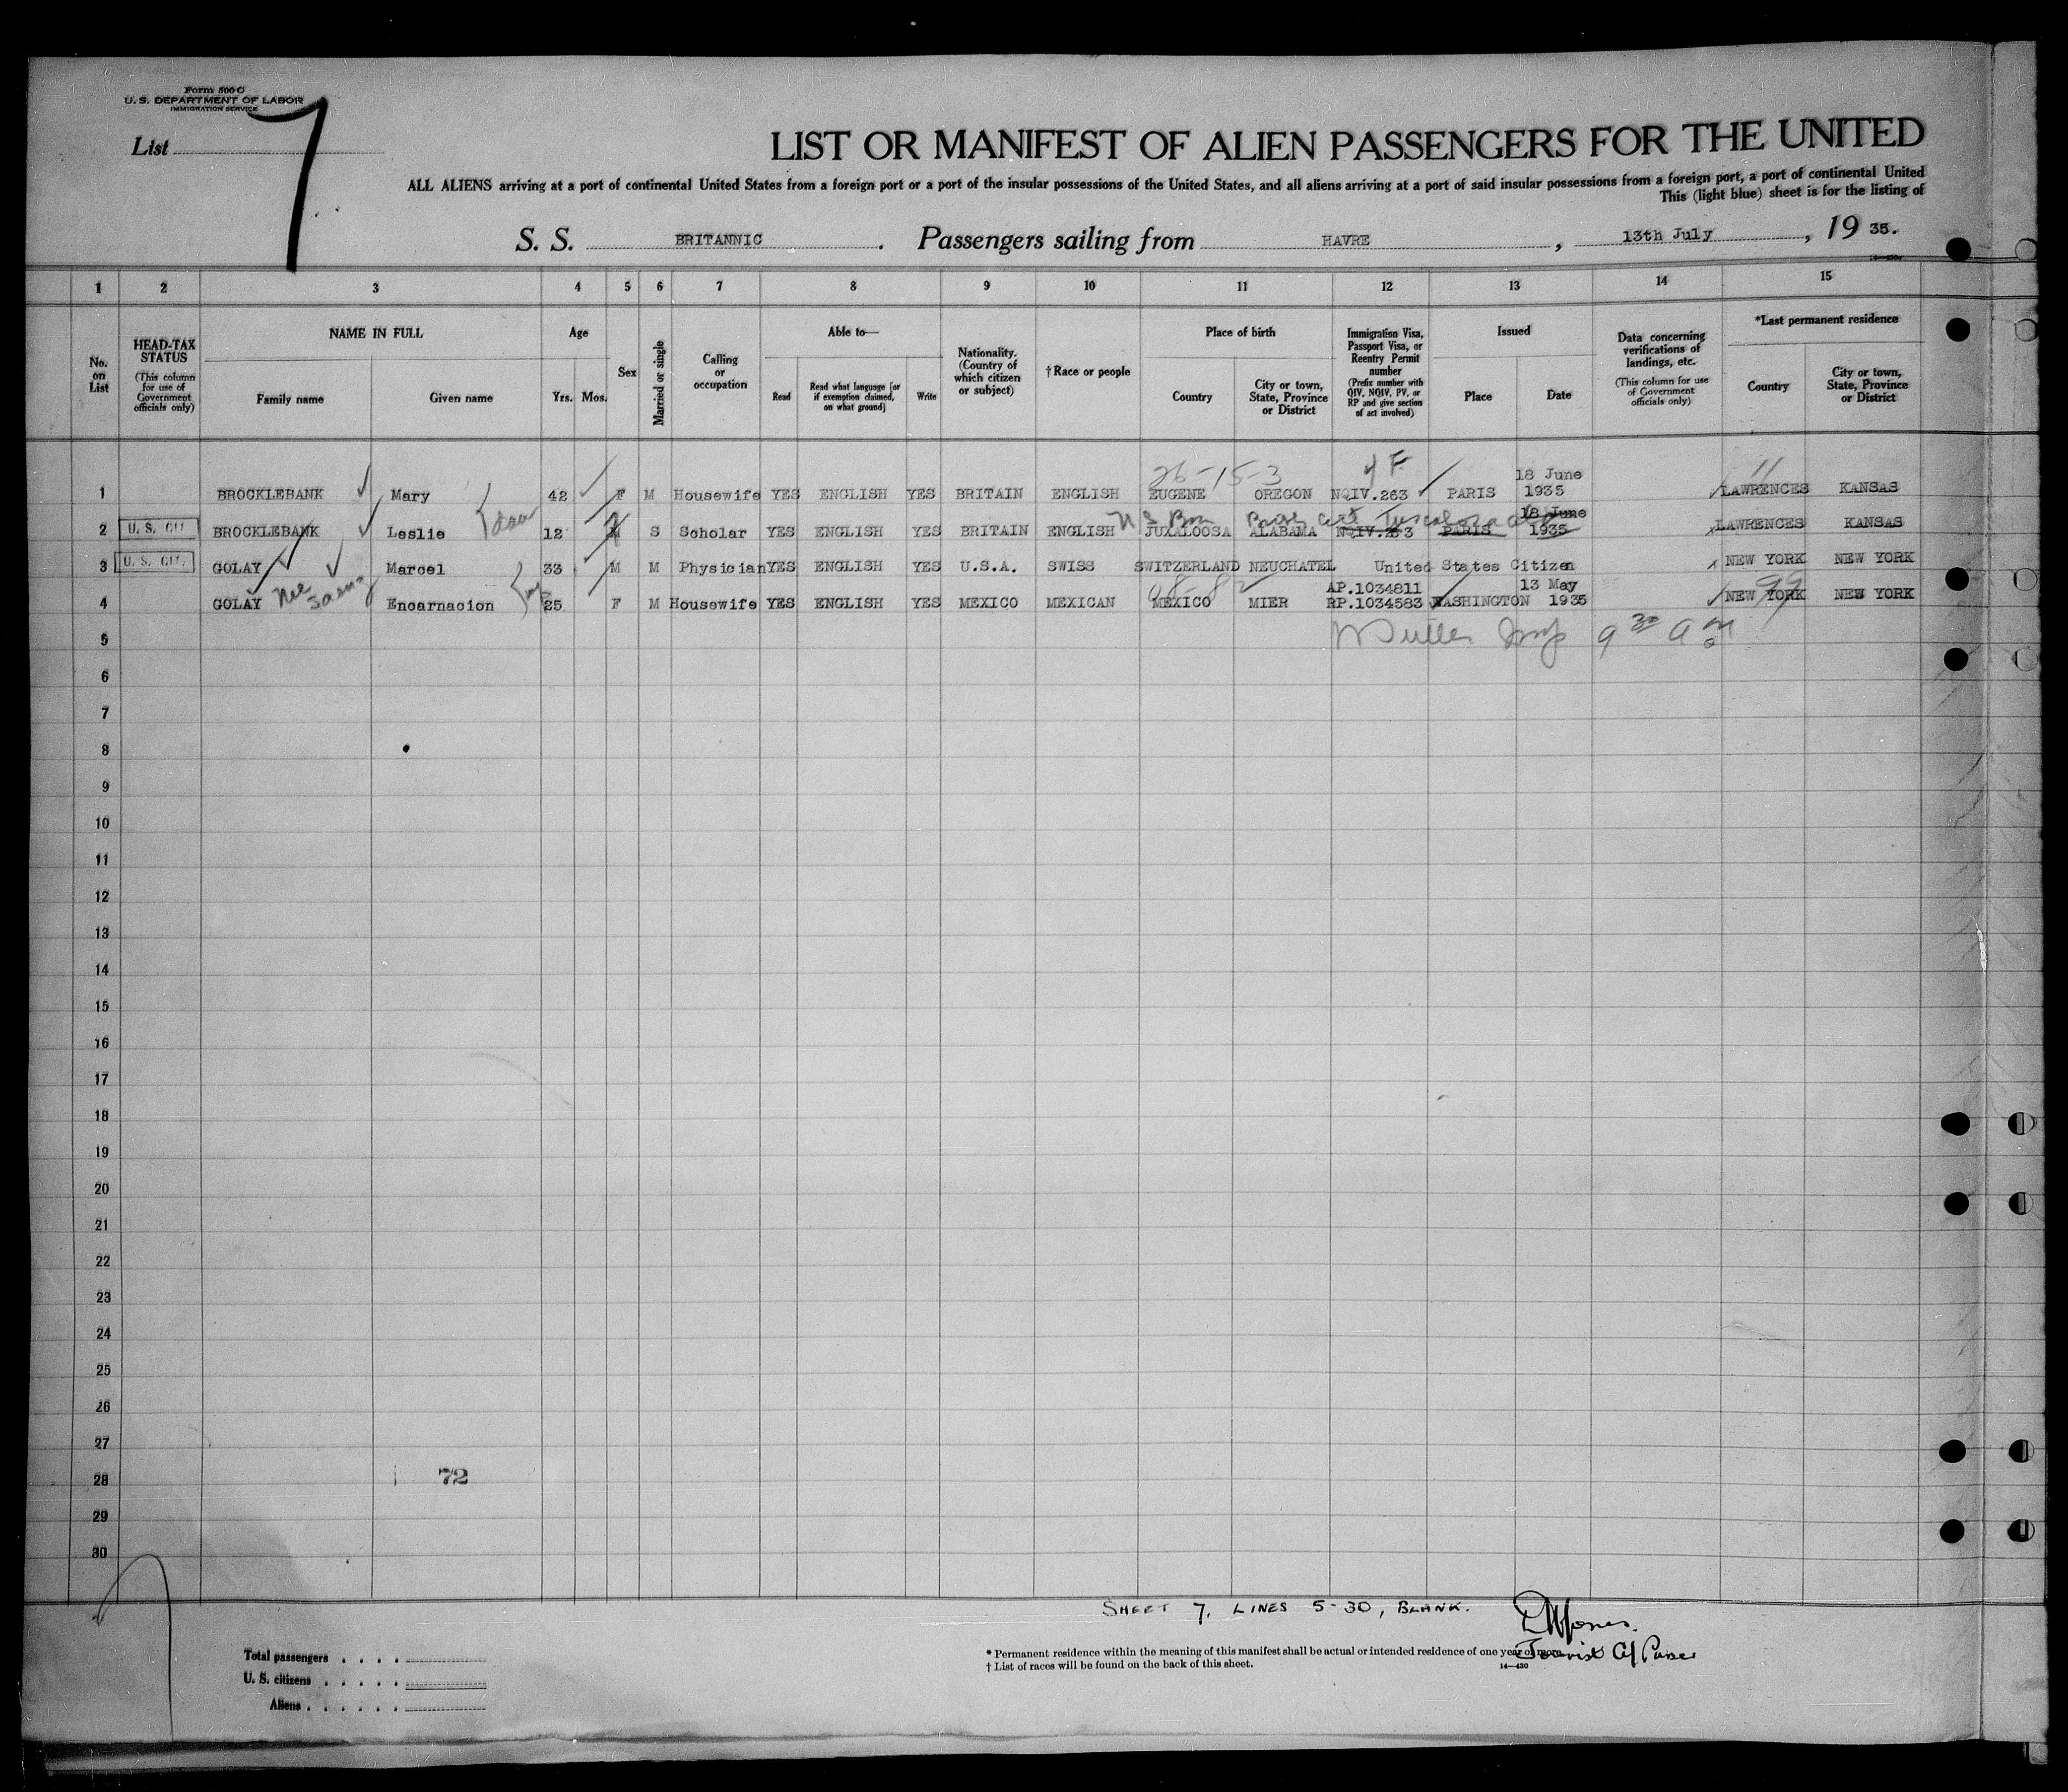 Form 500 C
U. S. DEPARTMENT OF LABOR
IMMIGRATION SERVICE
List 7
LIST OR MANIFEST OF ALIEN PASSENGERS FOR THE UNITED
ALL ALIENS arriving at a port of continental United States from a foreign port or a port of the insular possessions of the United States, and all aliens arriving at a port of said insular possessions from a foreign port, a port of continental United
This (light blue) sheet is for the listing of
S. S. BRITANNIC. Passengers sailing from HAVRE, 13th July, 19 35.
1 2 3 4 5 6 7 8 9 10 11 12 13 14 15
No. on List
HEAD-TAX STATUS (This column for use of Government officials only)
NAME IN FULL Family name Given name
Age Yrs. Mos.
Sex
Married or single
Calling or occupation
Able to— Read Read what language [or if exemption claimed, on what ground] Write
Nationality. (Country of which citizen or subject)
†Race or people
Place of birth Country City or town, State, Province or District
Immigration Visa, Passport Visa, or Reentry Permit number (Prefix number with QIV, NQIV, PV, or RP and give section of act involved)
Issued Place Date
Data concerning verifications of landings, etc. (This column for use of Government officials only)
*Last permanent residence Country City or town, State, Province or District
26-15-3 4 F 11
18 June
1 BROCKLEBANK Mary 42 F M Housewife YES ENGLISH YES BRITAIN ENGLISH EUGENE OREGON NQIV.263 PARIS 1935 LAWRENCES KANSAS
US Born Birth cert Tuscaloosa 18 June
2 U. S. CIT. BROCKLEBANK Leslie 12 S Scholar YES ENGLISH YES BRITAIN ENGLISH JUXALOOSA ALABAMA NQIV.263 PARIS 1935 LAWRENCES KANSAS
3 U. S. CIT. GOLAY Marcel 33 M M Physician YES ENGLISH YES U.S.A. SWISS SWITZERLAND NEUCHATEL United States Citizen NEW YORK NEW YORK
AP.1034811 13 May
4 GOLAY nee Encarnacion 25 F M Housewife YES ENGLISH YES MEXICO MEXICAN MEXICO MIER RP.1034583 WASHINGTON 1935 NEW YORK NEW YORK
99
5 Insp 9 30 a m
6
7
8
9
10
11
12
13
14
15
16
17
18
19
20
21
22
23
24
25
26
27
28 72
29
30
SHEET 7, LINES 5-30, BLANK.
Total passengers
U. S. citizens
Aliens
* Permanent residence within the meaning of this manifest shall be actual or intended residence of one year or more.
† List of races will be found on the back of this sheet.
14—430
Jones.
Tourist Purser